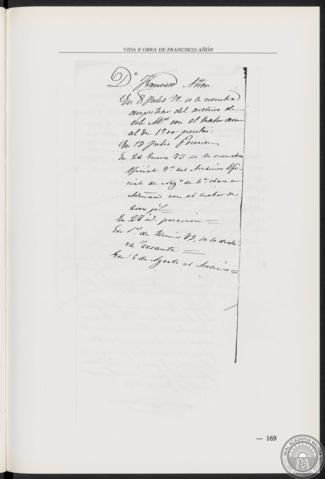 VIDA E OBRA DE FRANCISCO AÑÓN
Dn Francisco Añon
En 8 Julio 72 se le nombra
del archivo de
del Mº con el haber anu
al de 1500 pesetas
En 12 Julio Posesion
En 26 Enero 73 se le nombra
Oficial 3º del Archivo Ofi
cial de de 4ª clase de
con el haber de
2000
En 27 id. posesión
En 1º de Junio 73, se le decla
ra Cesante
En 5 de Agosto al Archivo
— 169